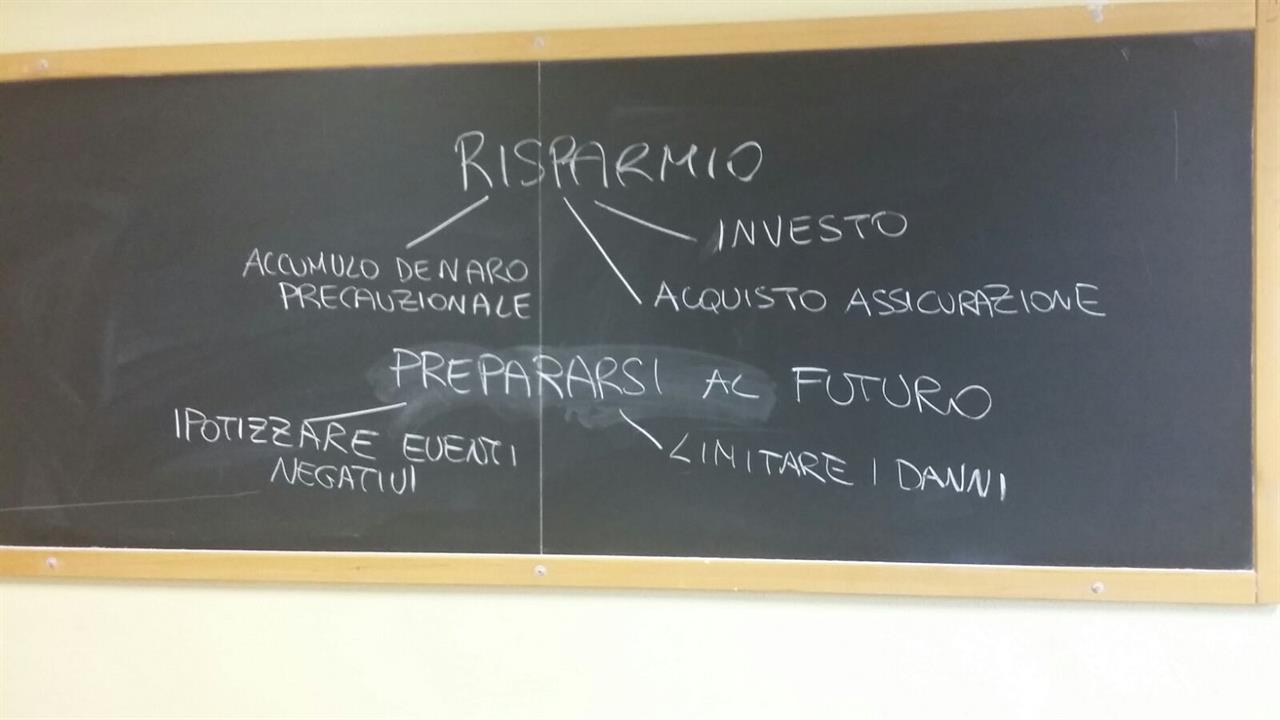 RISPARMIO
INVESTO
ACCUMULO DENARO
PRECAUZIONALE
ACQUISTO ASSICURAZIONE
PREPARARSI AL FUTURO
IPOTIZZARE EVENTI
NEGATIVI
LIMITARE I DANNI